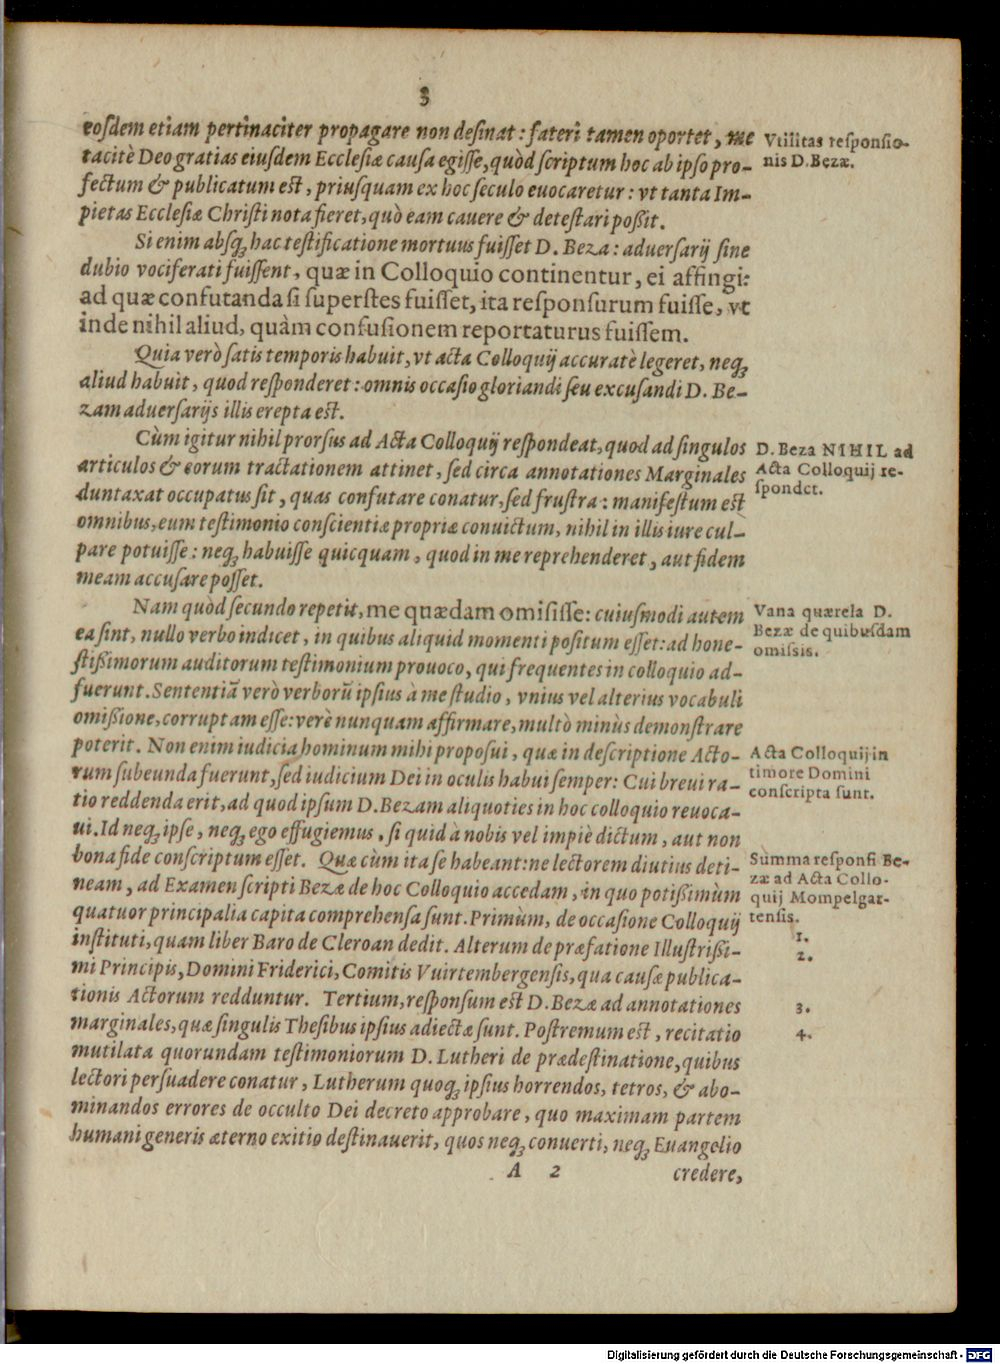 3
eosdem etiam pertinaciter propagare non desinat: fateri tamen oportet, me
tacitè Deo gratias eiusdem Ecclesiæ causa egisse, quòd scriptum hoc ab ipso pro-
fectum & publicatum est, priusquam ex hoc seculo euocaretur: vt tanta Im-
pietas Ecclesiæ Christi nota fieret, quò eam cauere & detestari poßit.
Vtilitas responsio-
nis D. Bezæ.
Si enim absq; hac testificatione mortuus fuisset D. Beza: aduersarij sine
dubio vociferati fuissent, quæ in Colloquio continentur, ei affingi:
ad quæ confutanda si superstes fuisset, ita responsurum fuisse, vt
inde nihil aliud, quàm confusionem reportaturus fuissem.
Quia verò satis temporis habuit, vt acta Colloquij accuratè legeret, neq;
aliud habuit, quod responderet: omnis occasio gloriandi seu excusandi D. Be-
zam aduersarijs illis erepta est.
Cùm igitur nihil prorsus ad Acta Colloquij respondeat, quod ad singulos
articulos & eorum tractationem attinet, sed circa annotationes Marginales
duntaxat occupatus sit, quas confutare conatur, sed frustra: manifestum est
omnibus, eum testimonio conscientiæ propriæ conuictum, nihil in illis iure cul-
pare potuisse: neq; habuisse quicquam, quod in me reprehenderet, aut fidem
meam accusare posset.
D. Beza NIHIL ad
Acta Colloquij re-
spondet.
Nam quòd secundo repetit, me quædam omisisse: cuiusmodi autem
ea sint, nullo verbo indicet, in quibus aliquid momenti positum esset: ad hone-
stißimorum auditorum testimonium prouoco, qui frequentes in colloquio ad-
fuerunt. Sententiã verò verborũ ipsius à me studio, vnius vel alterius vocabuli
omißione, corruptam esse: verè nunquam affirmare, multò minùs demonstrare
poterit. Non enim iudicia hominum mihi proposui, quæ in descriptione Acto-
rum subeunda fuerunt, sed iudicium Dei in oculis habui semper: Cui breui ra-
tio reddenda erit, ad quod ipsum D. Bezam aliquoties in hoc colloquio reuoca-
ui. Id neq; ipse, neq; ego effugiemus, si quid à nobis vel impiè dictum, aut non
bona fide conscriptum esset. Quæ cùm ita se habeant: ne lectorem diutius deti-
neam, ad Examen scripti Bezæ de hoc Colloquio accedam, in quo potißimùm
quatuor principalia capita comprehensa sunt. Primùm, de occasione Colloquij
instituti, quam liber Baro de Cleroan dedit. Alterum de præfatione Illustrißi-
mi Principis, Domini Friderici, Comitis Vuirtembergensis, qua causæ publica-
tionis Actorum redduntur. Tertium, responsum est D. Bezæ ad annotationes
marginales, quæ singulis Thesibus ipsius adiectæ sunt. Postremum est, recitatio
mutilata quorundam testimoniorum D. Lutheri de prædestinatione, quibus
lectori persuadere conatur, Lutherum quoq; ipsius horrendos, tetros, & abo-
minandos errores de occulto Dei decreto approbare, quo maximam partem
humani generis æterno exitio destinauerit, quos neq; conuerti, neq; Euangelio
Vana quærela D.
Bezæ de quibusdam
omissis.
Acta Colloquij in
timore Domini
conscripta sunt.
Summa responsi Be-
zæ ad Acta Collo-
quij Mompelgar-
tensis.
1.
2.
3.
4.
A 2
credere,
Digitalisierung gefördert durch die Deutsche Forschungsgemeinschaft - DFG